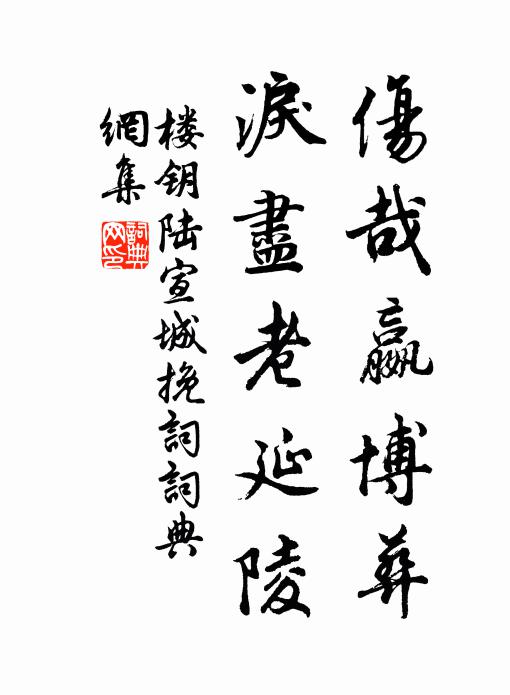 傷哉嬴博葬
淚盡老延陵
楼钥陆宣城挽詞詞典
網集
詞典
网印